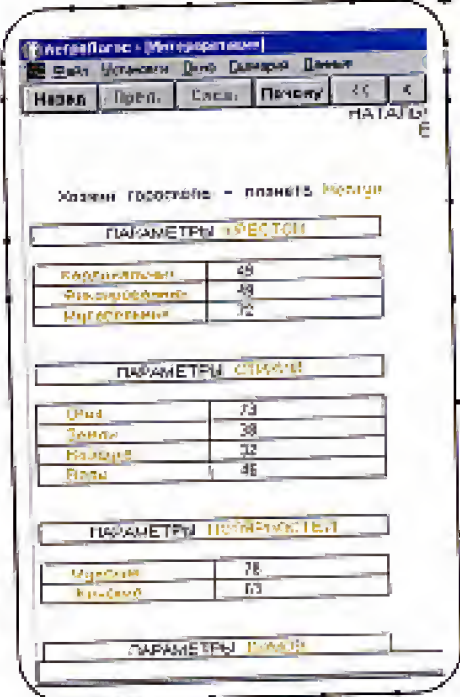 АстроЛогос - [Интерпретация]
Файл Установки Окно Сценарий Данные
Назад Пред. След. Почему << <
НАТАЛЬ
Хозяин гороскопа - планета
ПАРАМЕТРЫ КРЕСТОВ
Кардинальный 49
Фиксированный 49
Мутабельный
ПАРАМЕТРЫ СТИХИЙ
Огня 73
Земли 38
Воздуха
Воды 46
ПАРАМЕТРЫ ПОЛЯРНОСТЕЙ
Мужской 78
Женский 63
ПАРАМЕТРЫ